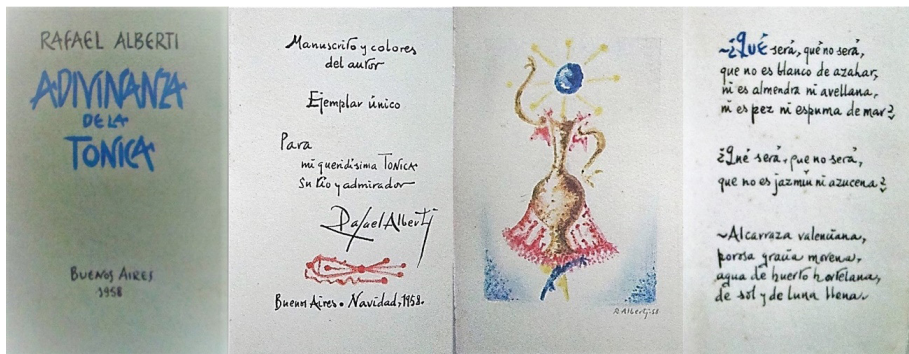 RAFAEL ALBERTI
ADIVINANZA
DE LA
TONICA
BUENOS AIRES
1958
Manuscrito y colores
del autor
Ejemplar único
Para
mi queridísima TONICA
su tío y admirador
Rafael Alberti
Buenos Aires. Navidad, 1958.
R. Alberti 58
~¿QUÉ será, que no será,
que no es blanco de azahar,
ni es almendra ni avellana,
ni es pez ni espuma de mar?
¿Qué será, que no será,
que no es jazmín ni azucena?
~Alcarraza valenciana,
porosa gracia morena,
agua de huerto hortelana,
de sol y de luna llena.